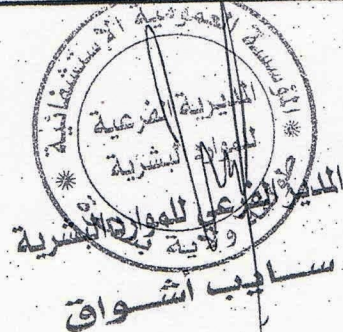 المؤسسة العمومية الإستشفائية
المديرية الفرعية
للموارد البشرية
ولاية
المدير الفرعي للموارد البشرية
سايب أشواق